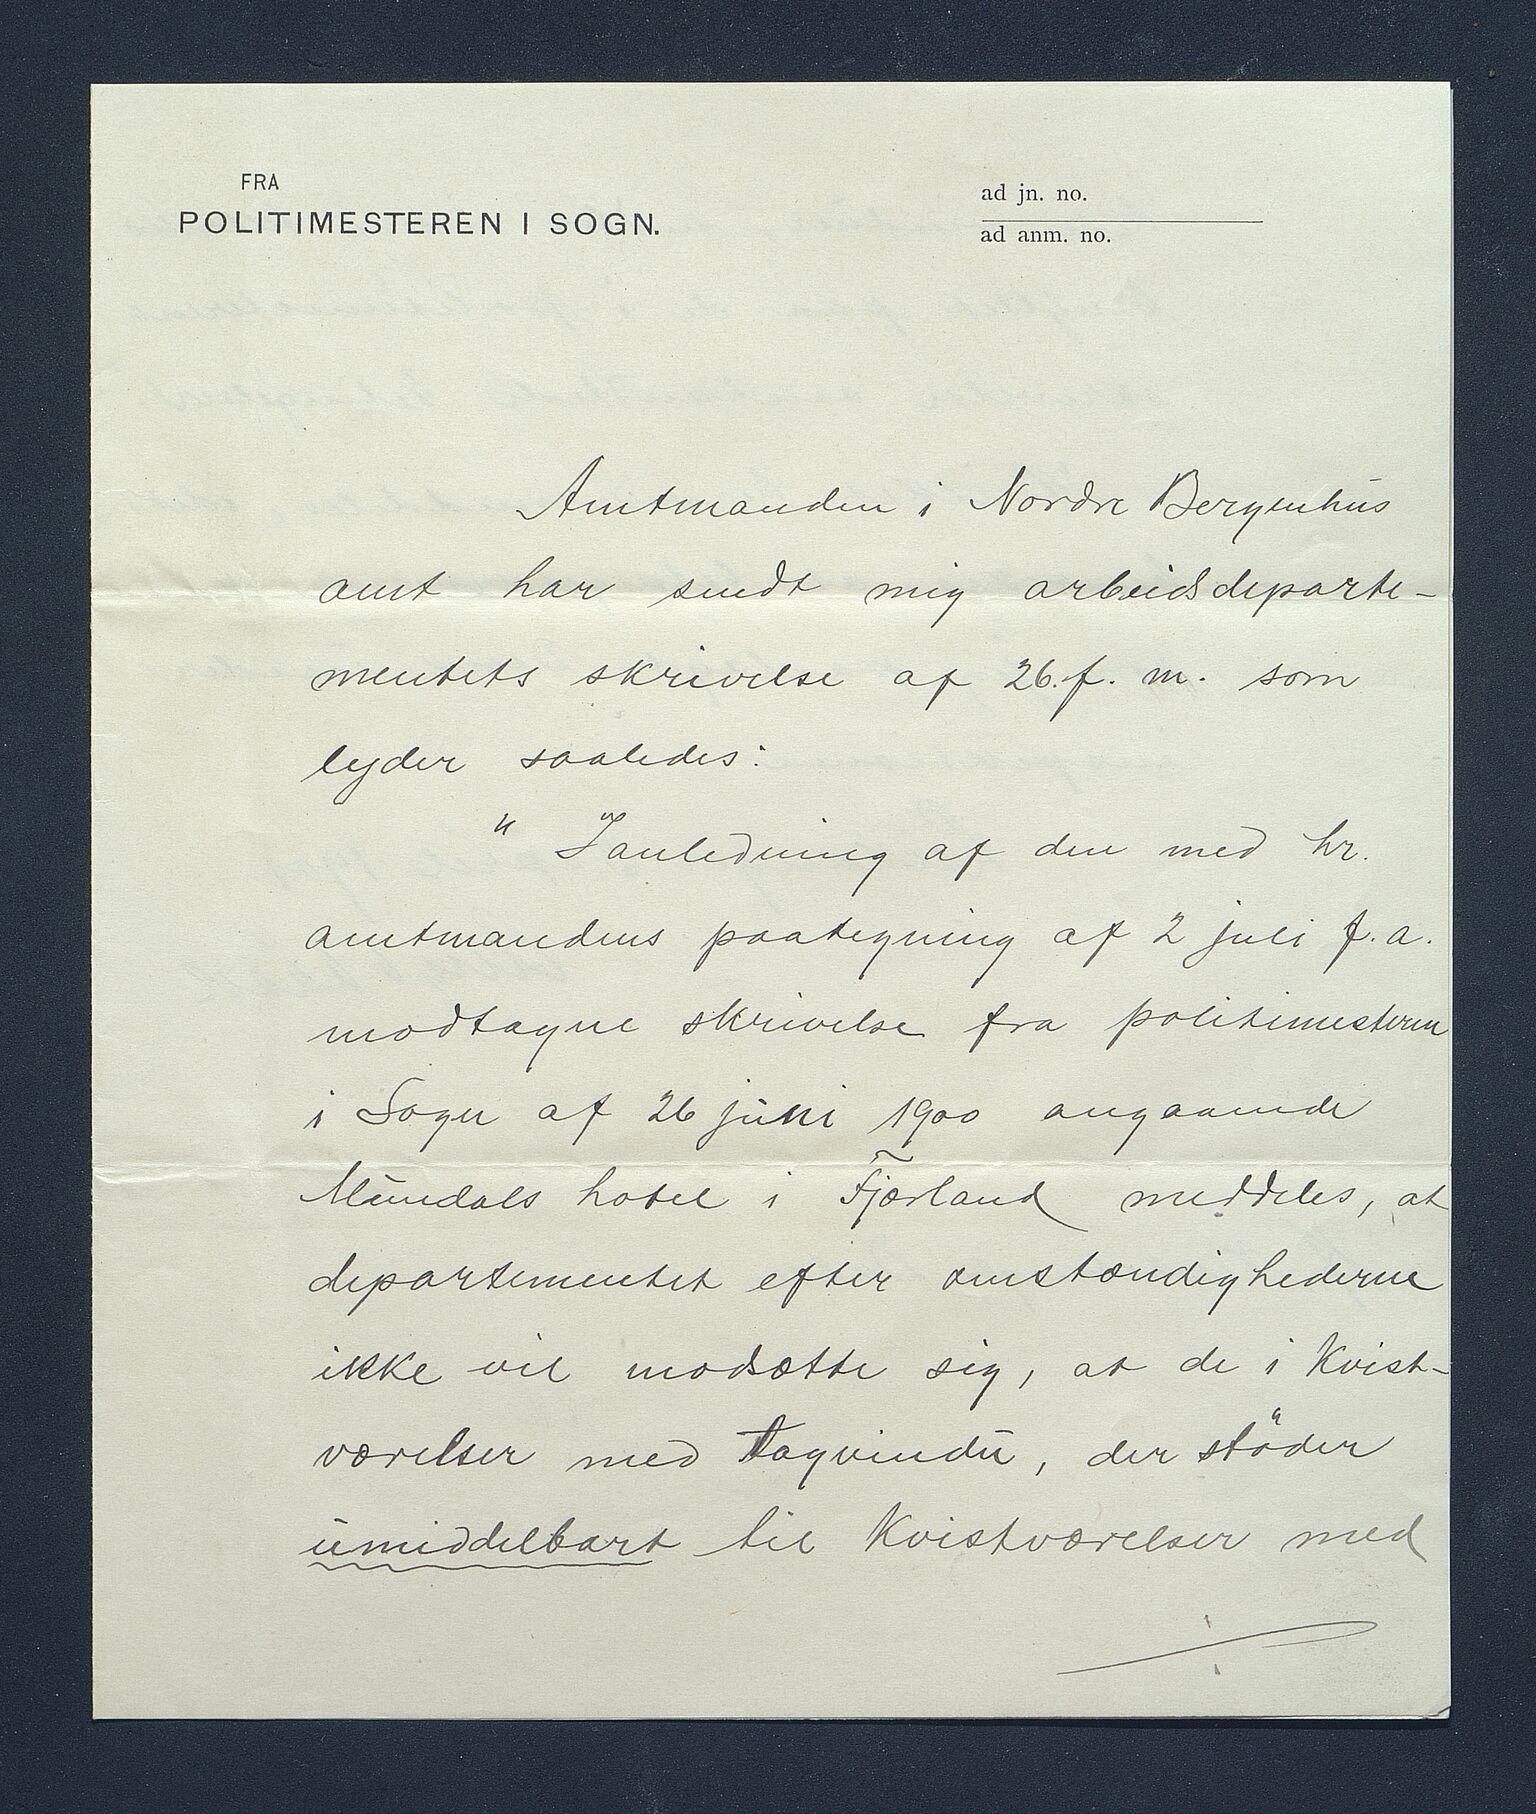 FRA
POLITIMESTEREN I SOGN.
ad jn. no.
ad anm. no.
Amtmanden i Nordre Bergenhus
amt har sendt mig arbeidsdeparte-
mentets skrivelse af 26. f. m. som
lyder saaledes:
" I anledning af den med hr.
amtmandens paategning af 2 juli f. a.
modtagne skrivelse fra politimesteren
i Sogn af 26 juni 1900 angaaende
Mundals hotel i Fjærland meddeles, at
departementet efter omstændighederne
ikke vil modsætte sig, at de i Kvist-
værelser med tagvindu, der støder
umiddelbart til Kvistværelser med